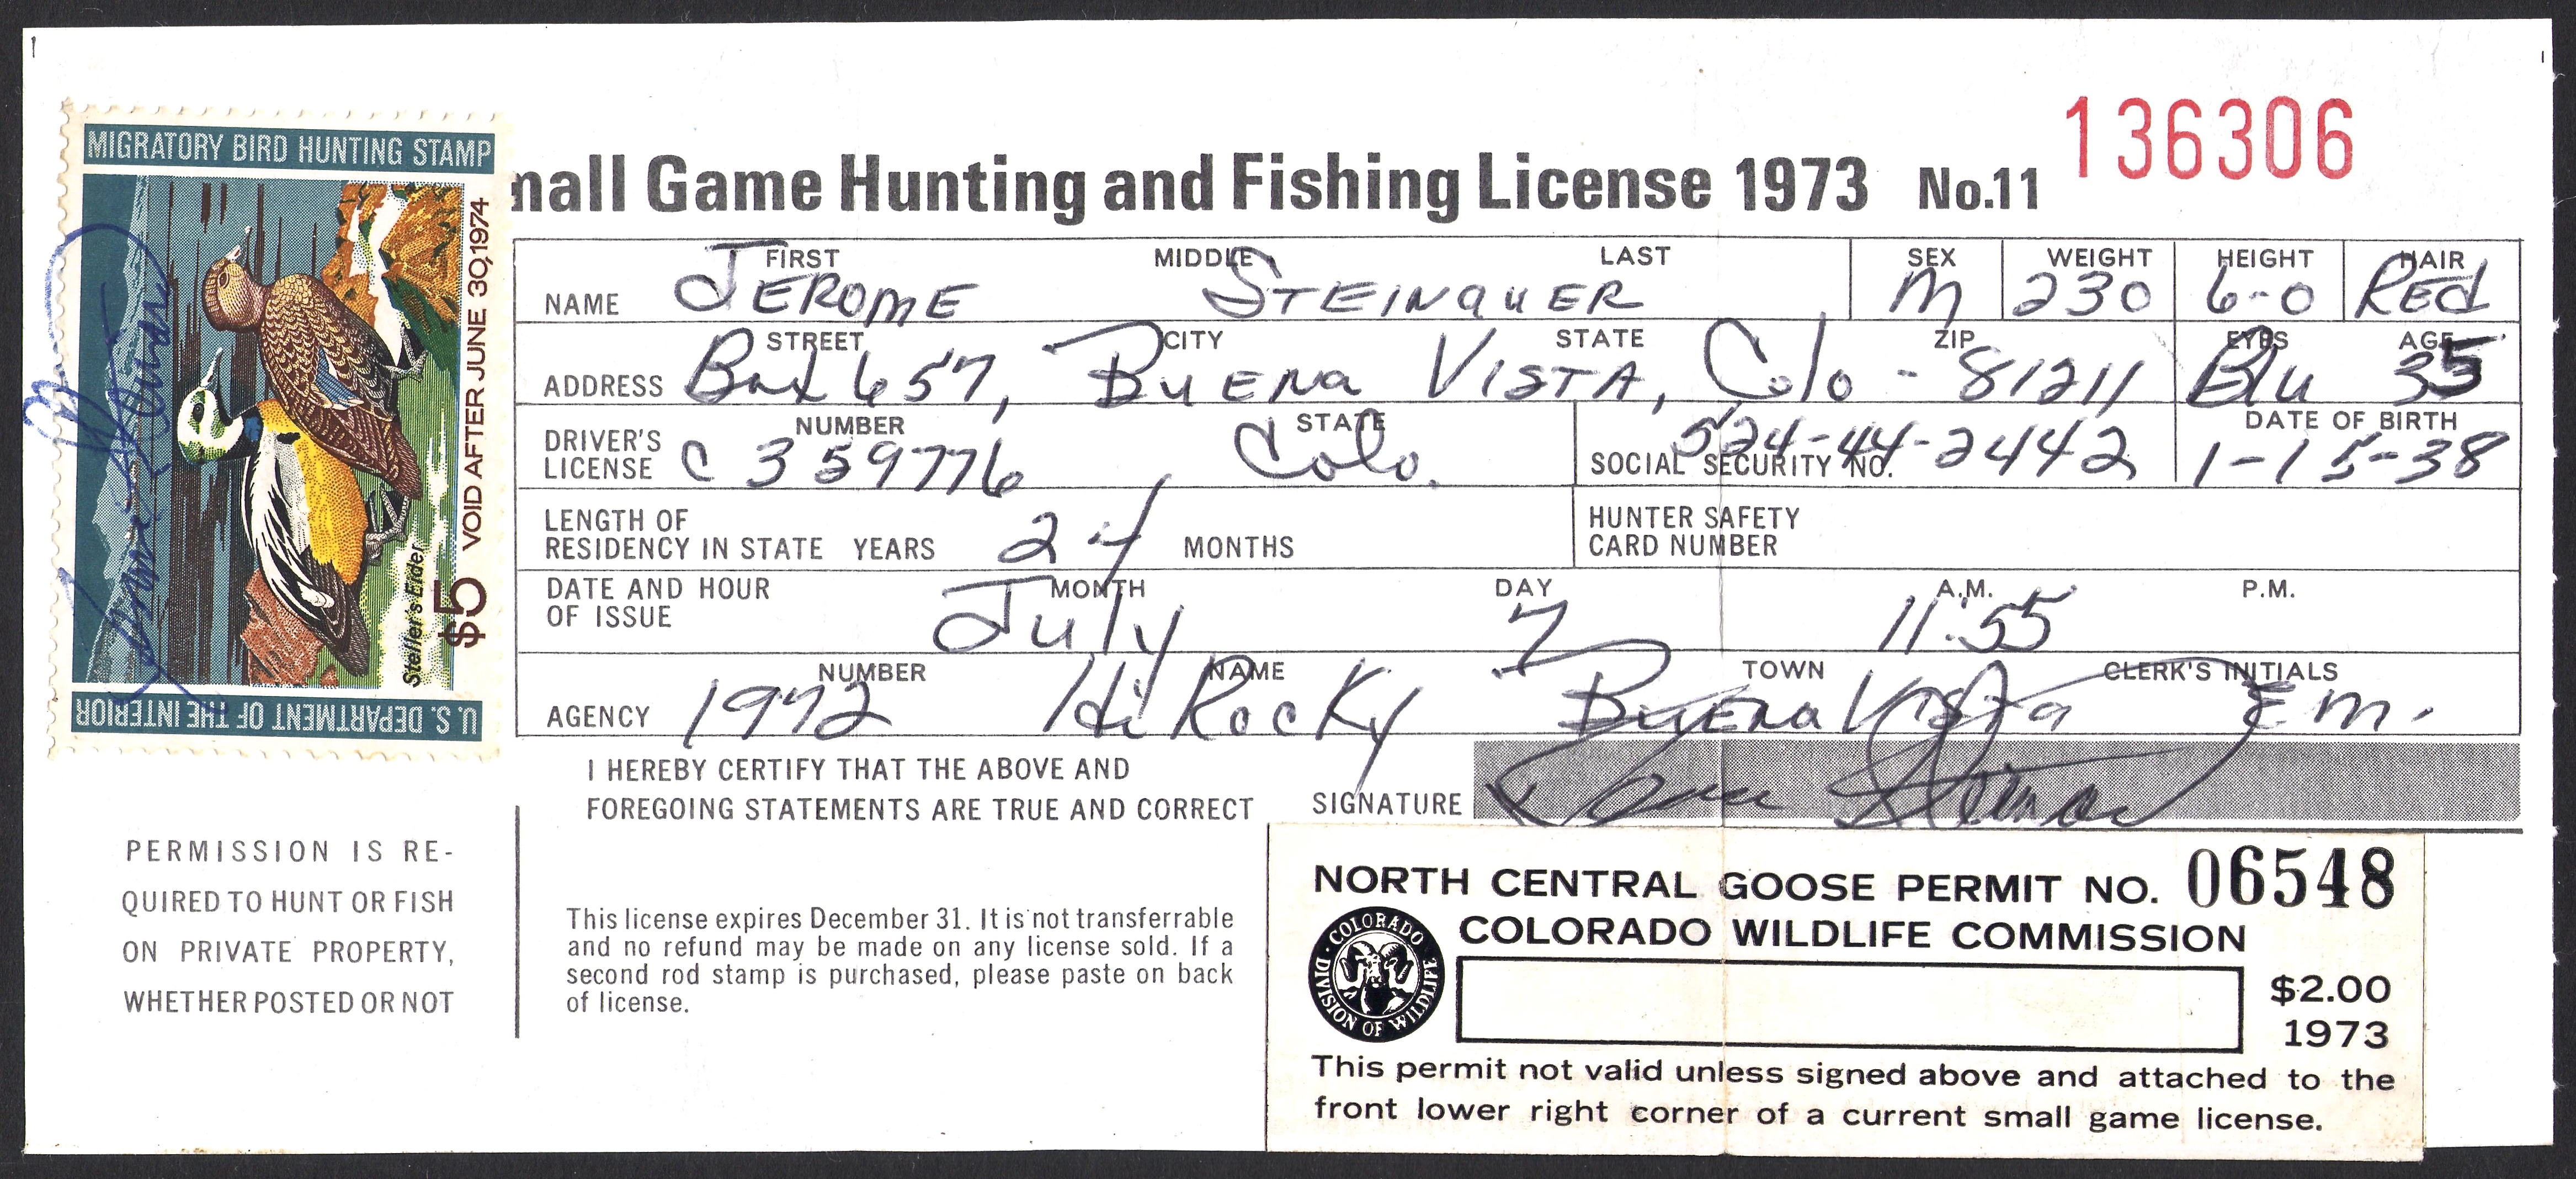 136306
mall Game Hunting and Fishing License 1973 No.11
MIGRATORY BIRD HUNTING STAMP
VOID AFTER JUNE 30, 1974
$5
Steller's Eider
U.S. DEPARTMENT OF THE INTERIOR
NAME FIRST JEROME MIDDLE LAST STEINAUER SEX M WEIGHT 230 HEIGHT 6-0 HAIR REd
ADDRESS STREET Box 657, CITY BUENA VISTA, STATE Colo - ZIP 81211 EYES Blu AGE 35
DRIVER'S LICENSE NUMBER C 359776 STATE Colo. SOCIAL SECURITY NO. 524-44-2442 DATE OF BIRTH 1-15-38
LENGTH OF RESIDENCY IN STATE YEARS 24 MONTHS HUNTER SAFETY CARD NUMBER
DATE AND HOUR OF ISSUE MONTH July DAY 7 A.M. 11:55 P.M.
AGENCY NUMBER 1972 NAME Hi Rocky TOWN BUENA VISTA CLERK'S INITIALS Em.
I HEREBY CERTIFY THAT THE ABOVE AND
FOREGOING STATEMENTS ARE TRUE AND CORRECT SIGNATURE
PERMISSION IS RE-
QUIRED TO HUNT OR FISH
ON PRIVATE PROPERTY,
WHETHER POSTED OR NOT
This license expires December 31. It is not transferrable
and no refund may be made on any license sold. If a
second rod stamp is purchased, please paste on back
of license.
NORTH CENTRAL GOOSE PERMIT NO. 06548
COLORADO WILDLIFE COMMISSION
COLORADO DIVISION OF WILDLIFE
$2.00
1973
This permit not valid unless signed above and attached to the
front lower right corner of a current small game license.